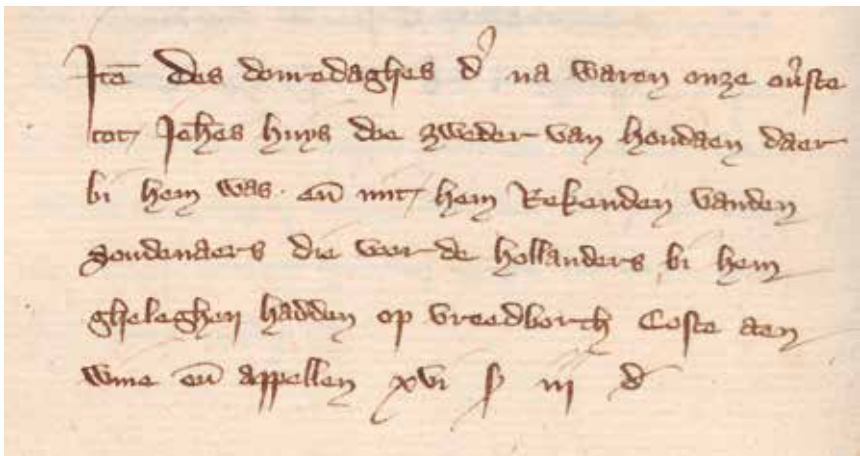 Itē des donredaghes d' na waren onze ou'ste
tot Jehēs huys doe zweder van houdaen daer
bi hem was. eñ mit hem Rekenden vanden
goudenaers die voer de hollanders bi hem
gheleghen hadden op vreedborch Coste aen
wine eñ appellen xvi ß iij d'